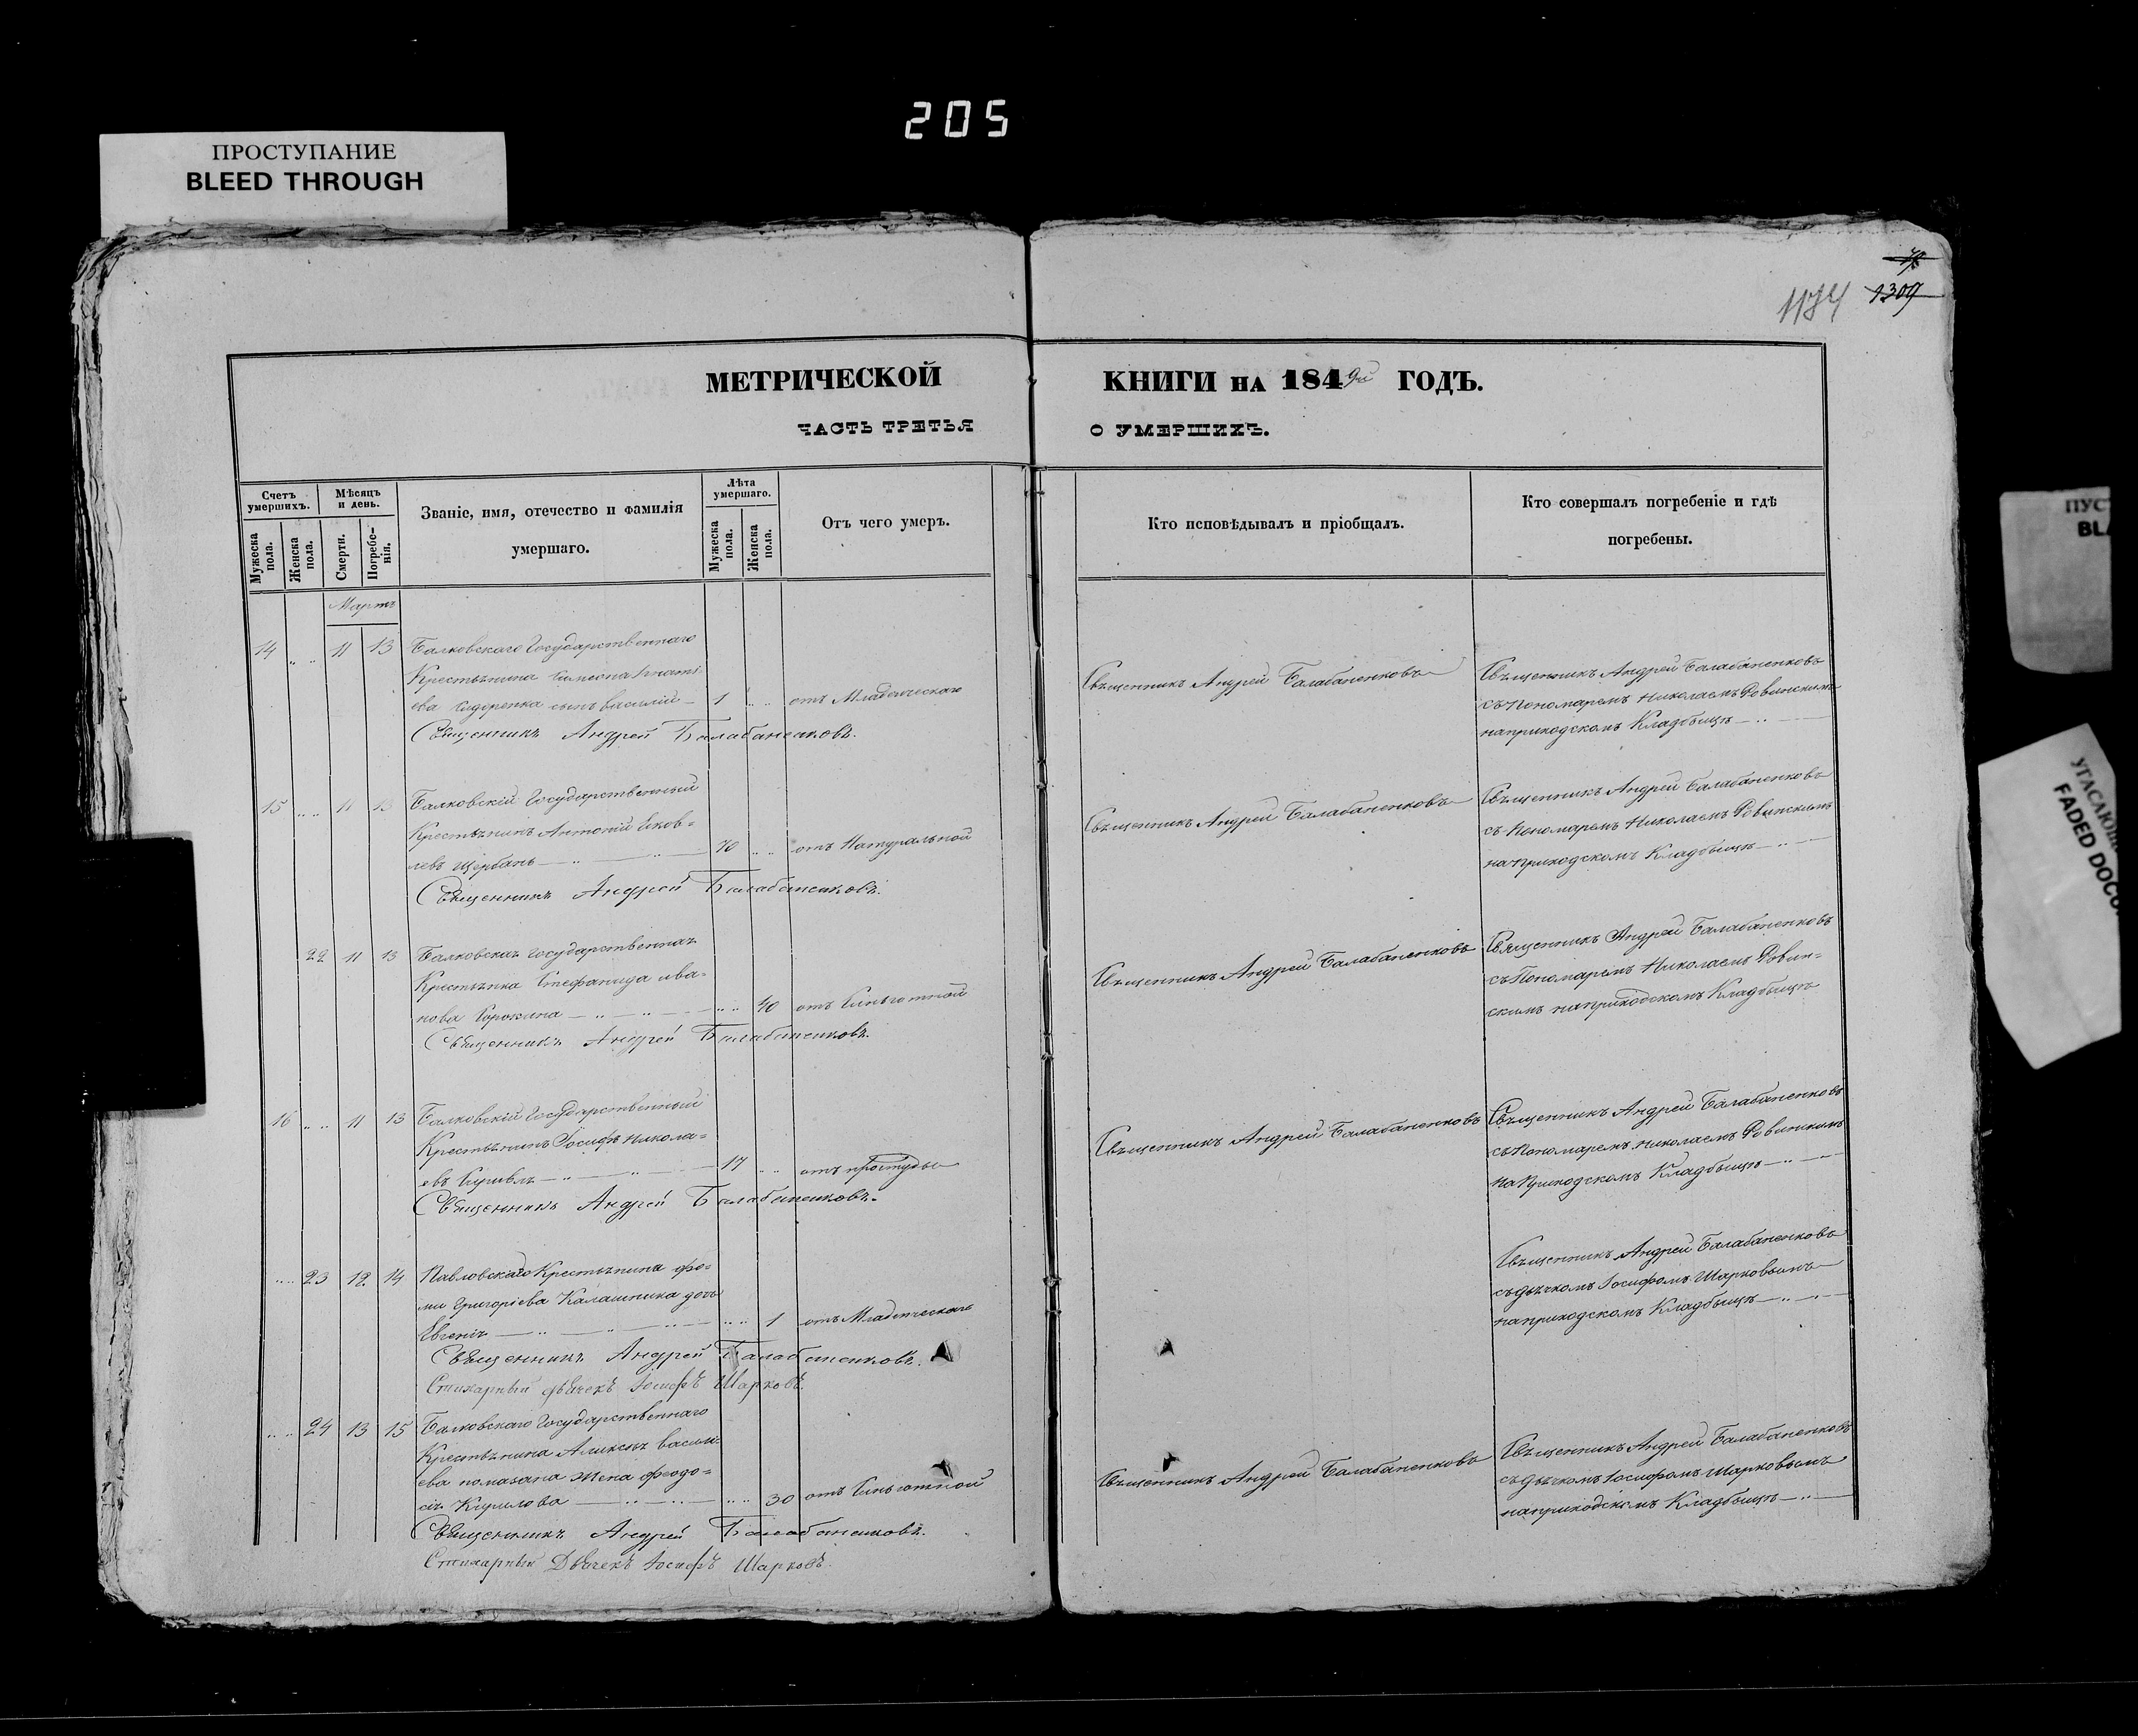 205
ПРОСТУПАНИЕ
BLEED THROUGH
1309
1174
МЕТРИЧЕСКОЙ КНИГИ НА 1849й ГОДЪ.
ЧАСТЬ ТРЕТЬЯ О УМЕРШИХЪ.
Счетъ умершихъ.
Мѣсяцъ и день.
Званіе, имя, отечество и фамилія умершаго.
Лѣта умершаго.
Отъ чего умеръ.
Кто исповѣдывалъ и пріобщалъ.
Кто совершалъ погребеніе и гдѣ погребены.
Мужеска пола.
Женска пола.
Смерти.
Погребенія.
Мужеска пола.
Женска пола.
Мартъ
14 11 13 Балковскаго Государственнаго
Крестьянина Симеона Игнатi-
ева Сидоренка сынъ Василій 1 отъ Младенческаго
Священникъ Андрей Балабаненковъ
Священникъ Андрей Балабаненковъ
съ Пономаремъ Николаемъ Ровинскимъ
на приходскомъ Кладбищѣ
Священникъ Андрей Балабаненковъ.
15 11 13 Балковскій Государственный
Крестьянинъ Антоній Яков-
левъ Щербань 70 отъ Натуральной
Священникъ Андрей Балабаненковъ
Священникъ Андрей Балабаненковъ
съ Пономаремъ Николаемъ Ровинскимъ
на приходскомъ Кладбищѣ
Священникъ Андрей Балабаненковъ.
22 11 13 Балковская Государственная
Крестьянка Стефанида Ива-
нова Сорокина 40 отъ
Священникъ Андрей Балабаненковъ
Священникъ Андрей Балабаненковъ
съ Пономаремъ Николаемъ Ровин-
скимъ на приходскомъ Кладбищѣ
Священникъ Андрей Балабаненковъ.
16 11 13 Балковскій Государственный
Крестьянинъ Іосифъ Никола-
евъ 17 отъ простуды
Священникъ Андрей Балабаненковъ
Священникъ Андрей Балабаненковъ
съ Пономаремъ Николаемъ Ровинскимъ
на Приходскомъ Кладбищѣ
Священникъ Андрей Балабаненковъ.
23 12 14 Павловскаго Крестьянина Фо-
мы Григоріева Калашника дочь
Евгенія 1 отъ Младенческаго
Священникъ Андрей Балабаненковъ
съ дьячкомъ Іосифомъ Шарковымъ
на приходскомъ Кладбищѣ
Священникъ Андрей Балабаненковъ.
Стихарный дьячекъ Іосифъ Шарковъ.
24 13 15 Балковскаго Государственнаго
Крестьянина Алексея Василi-
ева Помазана Жена Феодо-
сія Кирилова 30 отъ
Священникъ Андрей Балабаненковъ
Священникъ Андрей Балабаненковъ
съ дьячкомъ Іосифомъ Шарковымъ
на приходскомъ Кладбищѣ
Священникъ Андрей Балабаненковъ.
Стихарный Дьячекъ Іосифъ Шарковъ.
ПУС
BL
УГАСАЮЩ
FADED DOCU